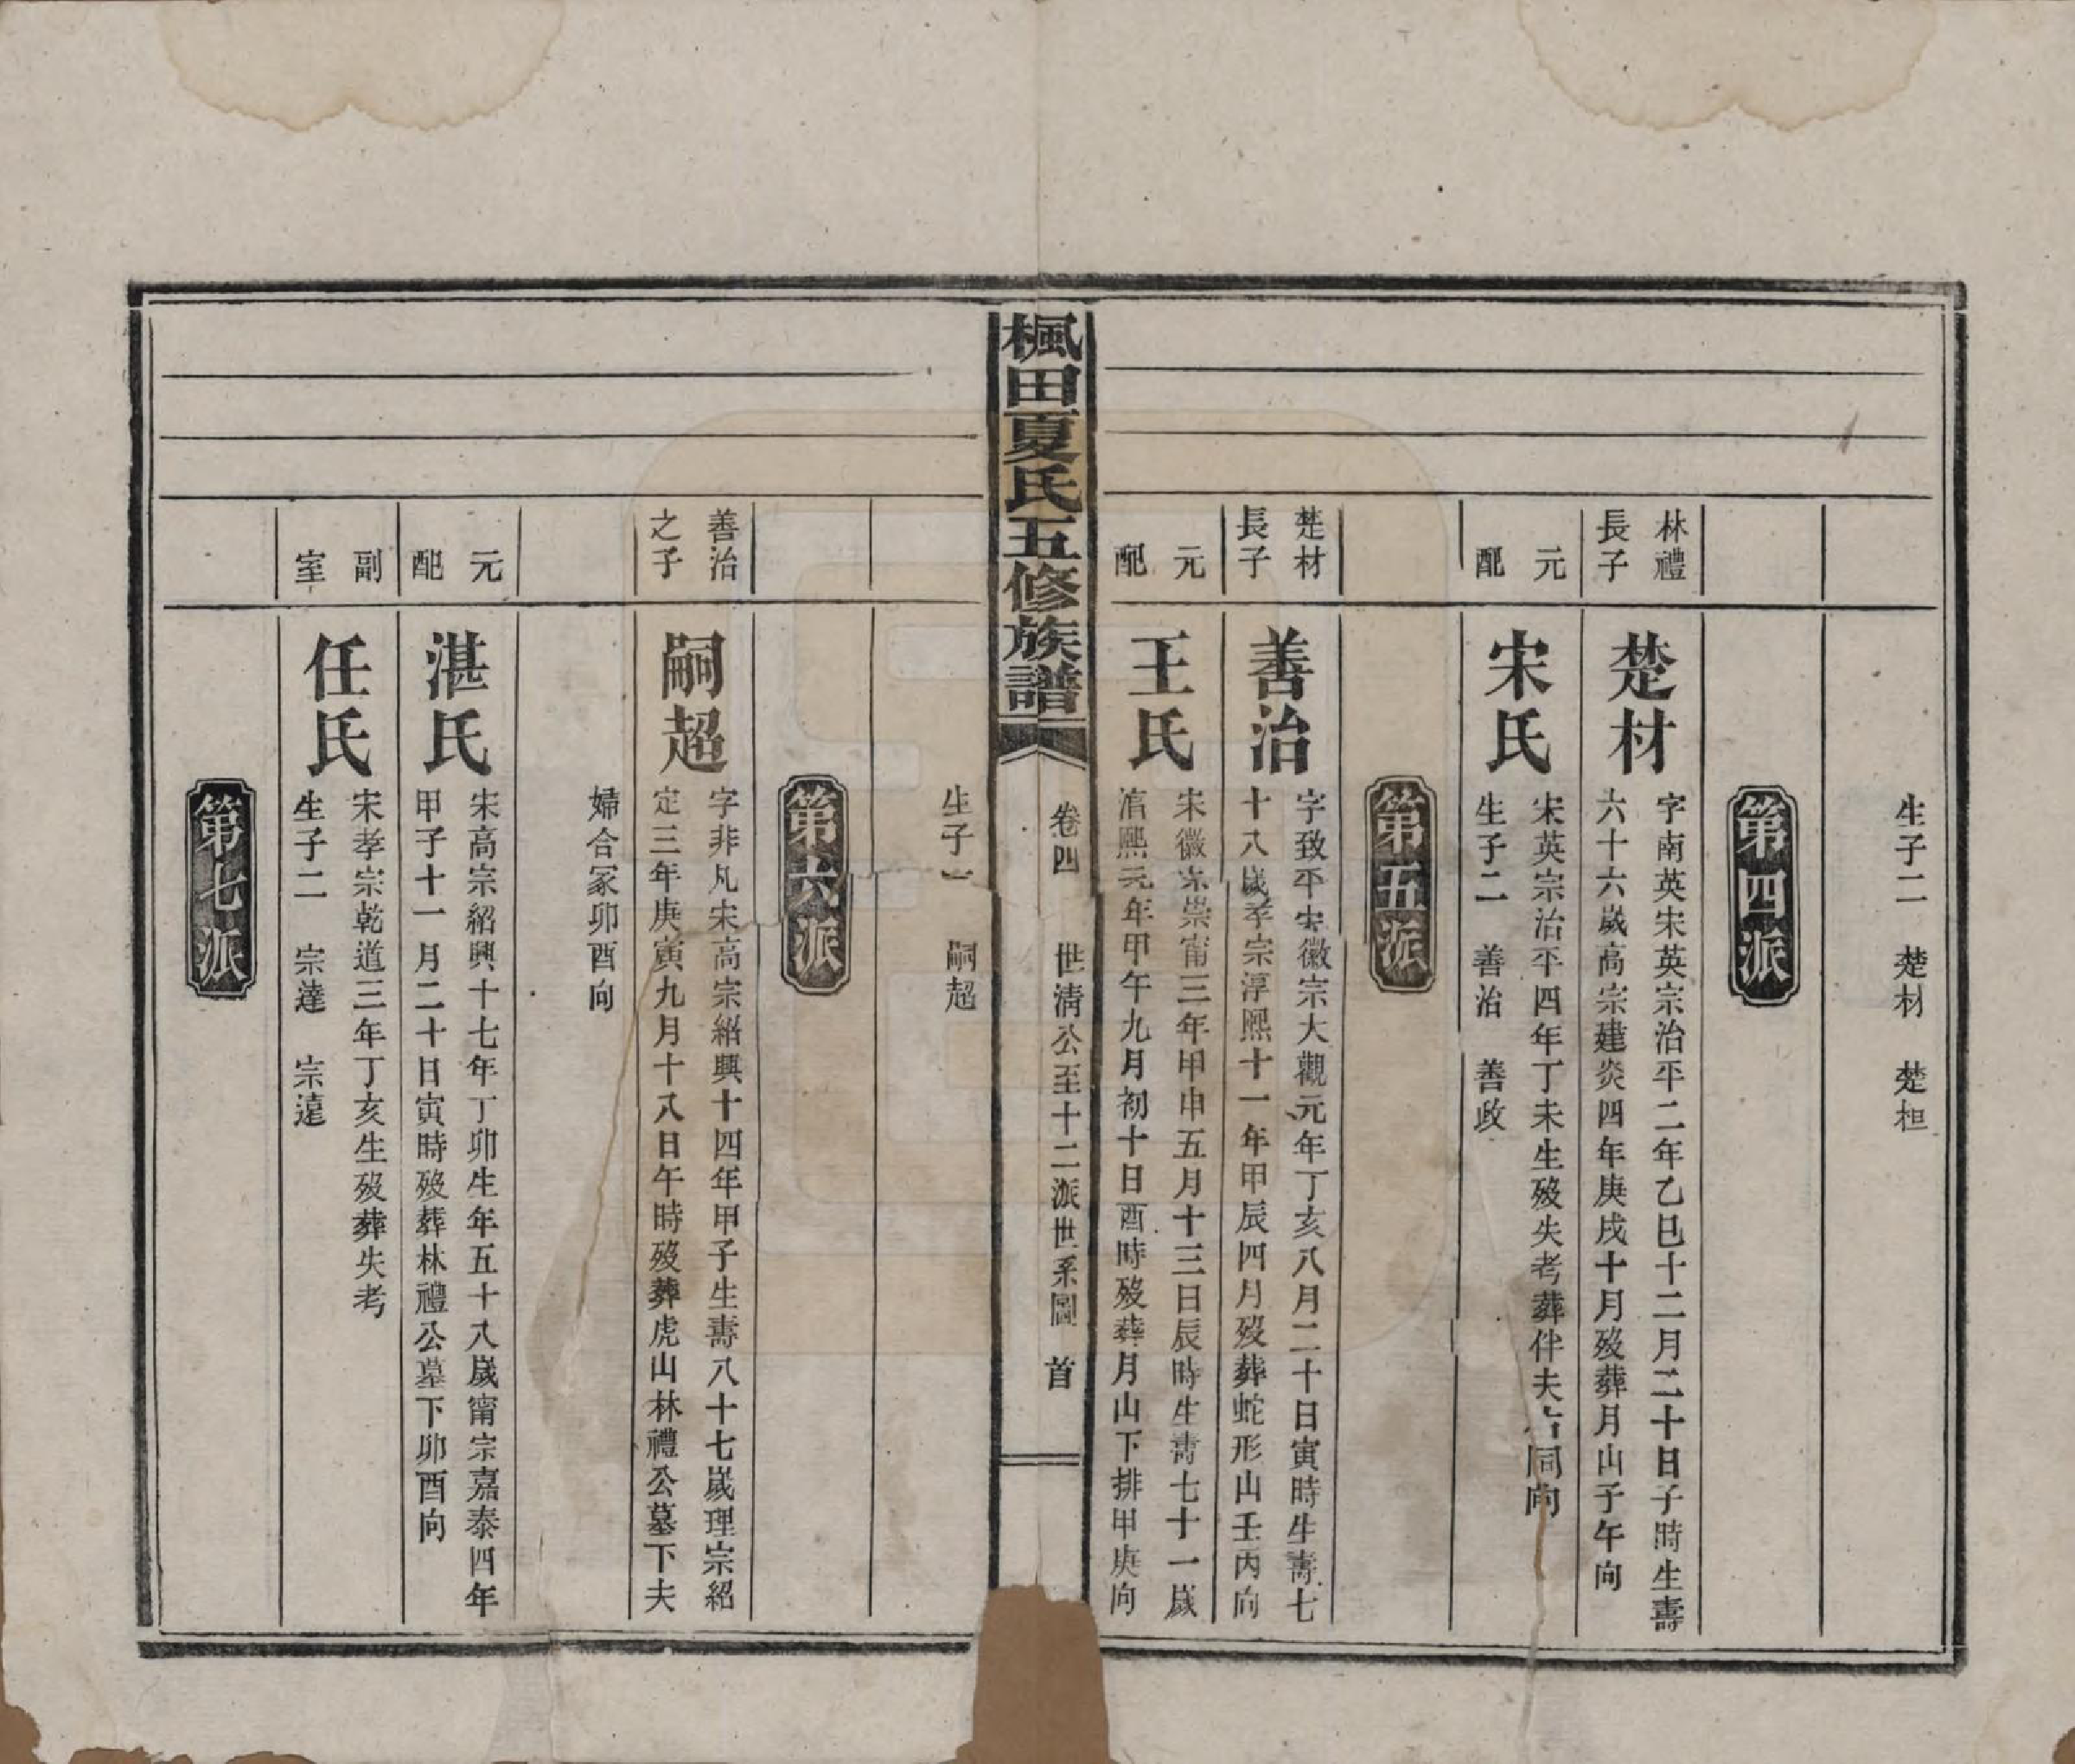 生子二　楚材　楚桓
第四派
林禮長子
楚材
字南英宋英宗治平二年乙巳十二月二十日子時生壽
六十六歲高宗建炎四年庚戌十月歿葬月山子午向
元配
宋氏
宋英宗治平四年丁未生歿失考葬伴夫右同向
生子二　善治　善政
第五派
楚材長子
善治
字致平宋徽宗大觀元年丁亥八月二十日寅時生壽七
十八歲孝宗淳熙十一年甲辰四月歿葬蛇形山壬丙向
元配
王氏
宋徽宗崇甯三年甲申五月十三日辰時生壽七十一歲
淳熙元年甲午九月初十日酉時歿葬月山下排甲庚向
楓田夏氏五修族譜
卷四　世清公至十二派世系圖　首
生子一　嗣超
第六派
善治之子
嗣超
字非凡宋高宗紹興十四年甲子生壽八十七歲理宗紹
定三年庚寅九月十八日午時歿葬虎山林禮公墓下夫
婦合冢卯酉向
元配
湛氏
宋高宗紹興十七年丁卯生年五十八歲甯宗嘉泰四年
甲子十一月二十日寅時歿葬林禮公墓下卯酉向
副室
任氏
宋孝宗乾道三年丁亥生歿葬失考
生子二　宗達　宗遠
第七派